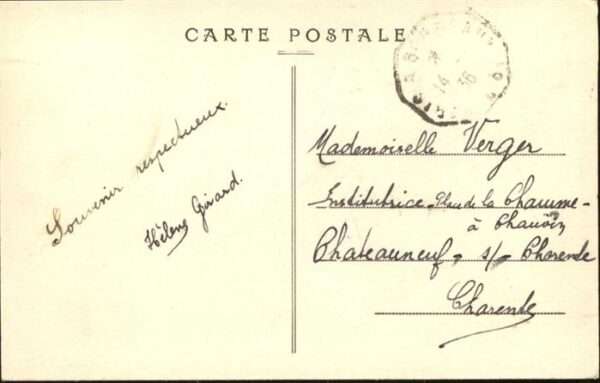 CARTE POSTALE
Souvenir respectueux.
Hélène Girard.
Mademoiselle Verger
Institutrice de la Chaume-
à
Chateauneuf s/ Charente
Charente